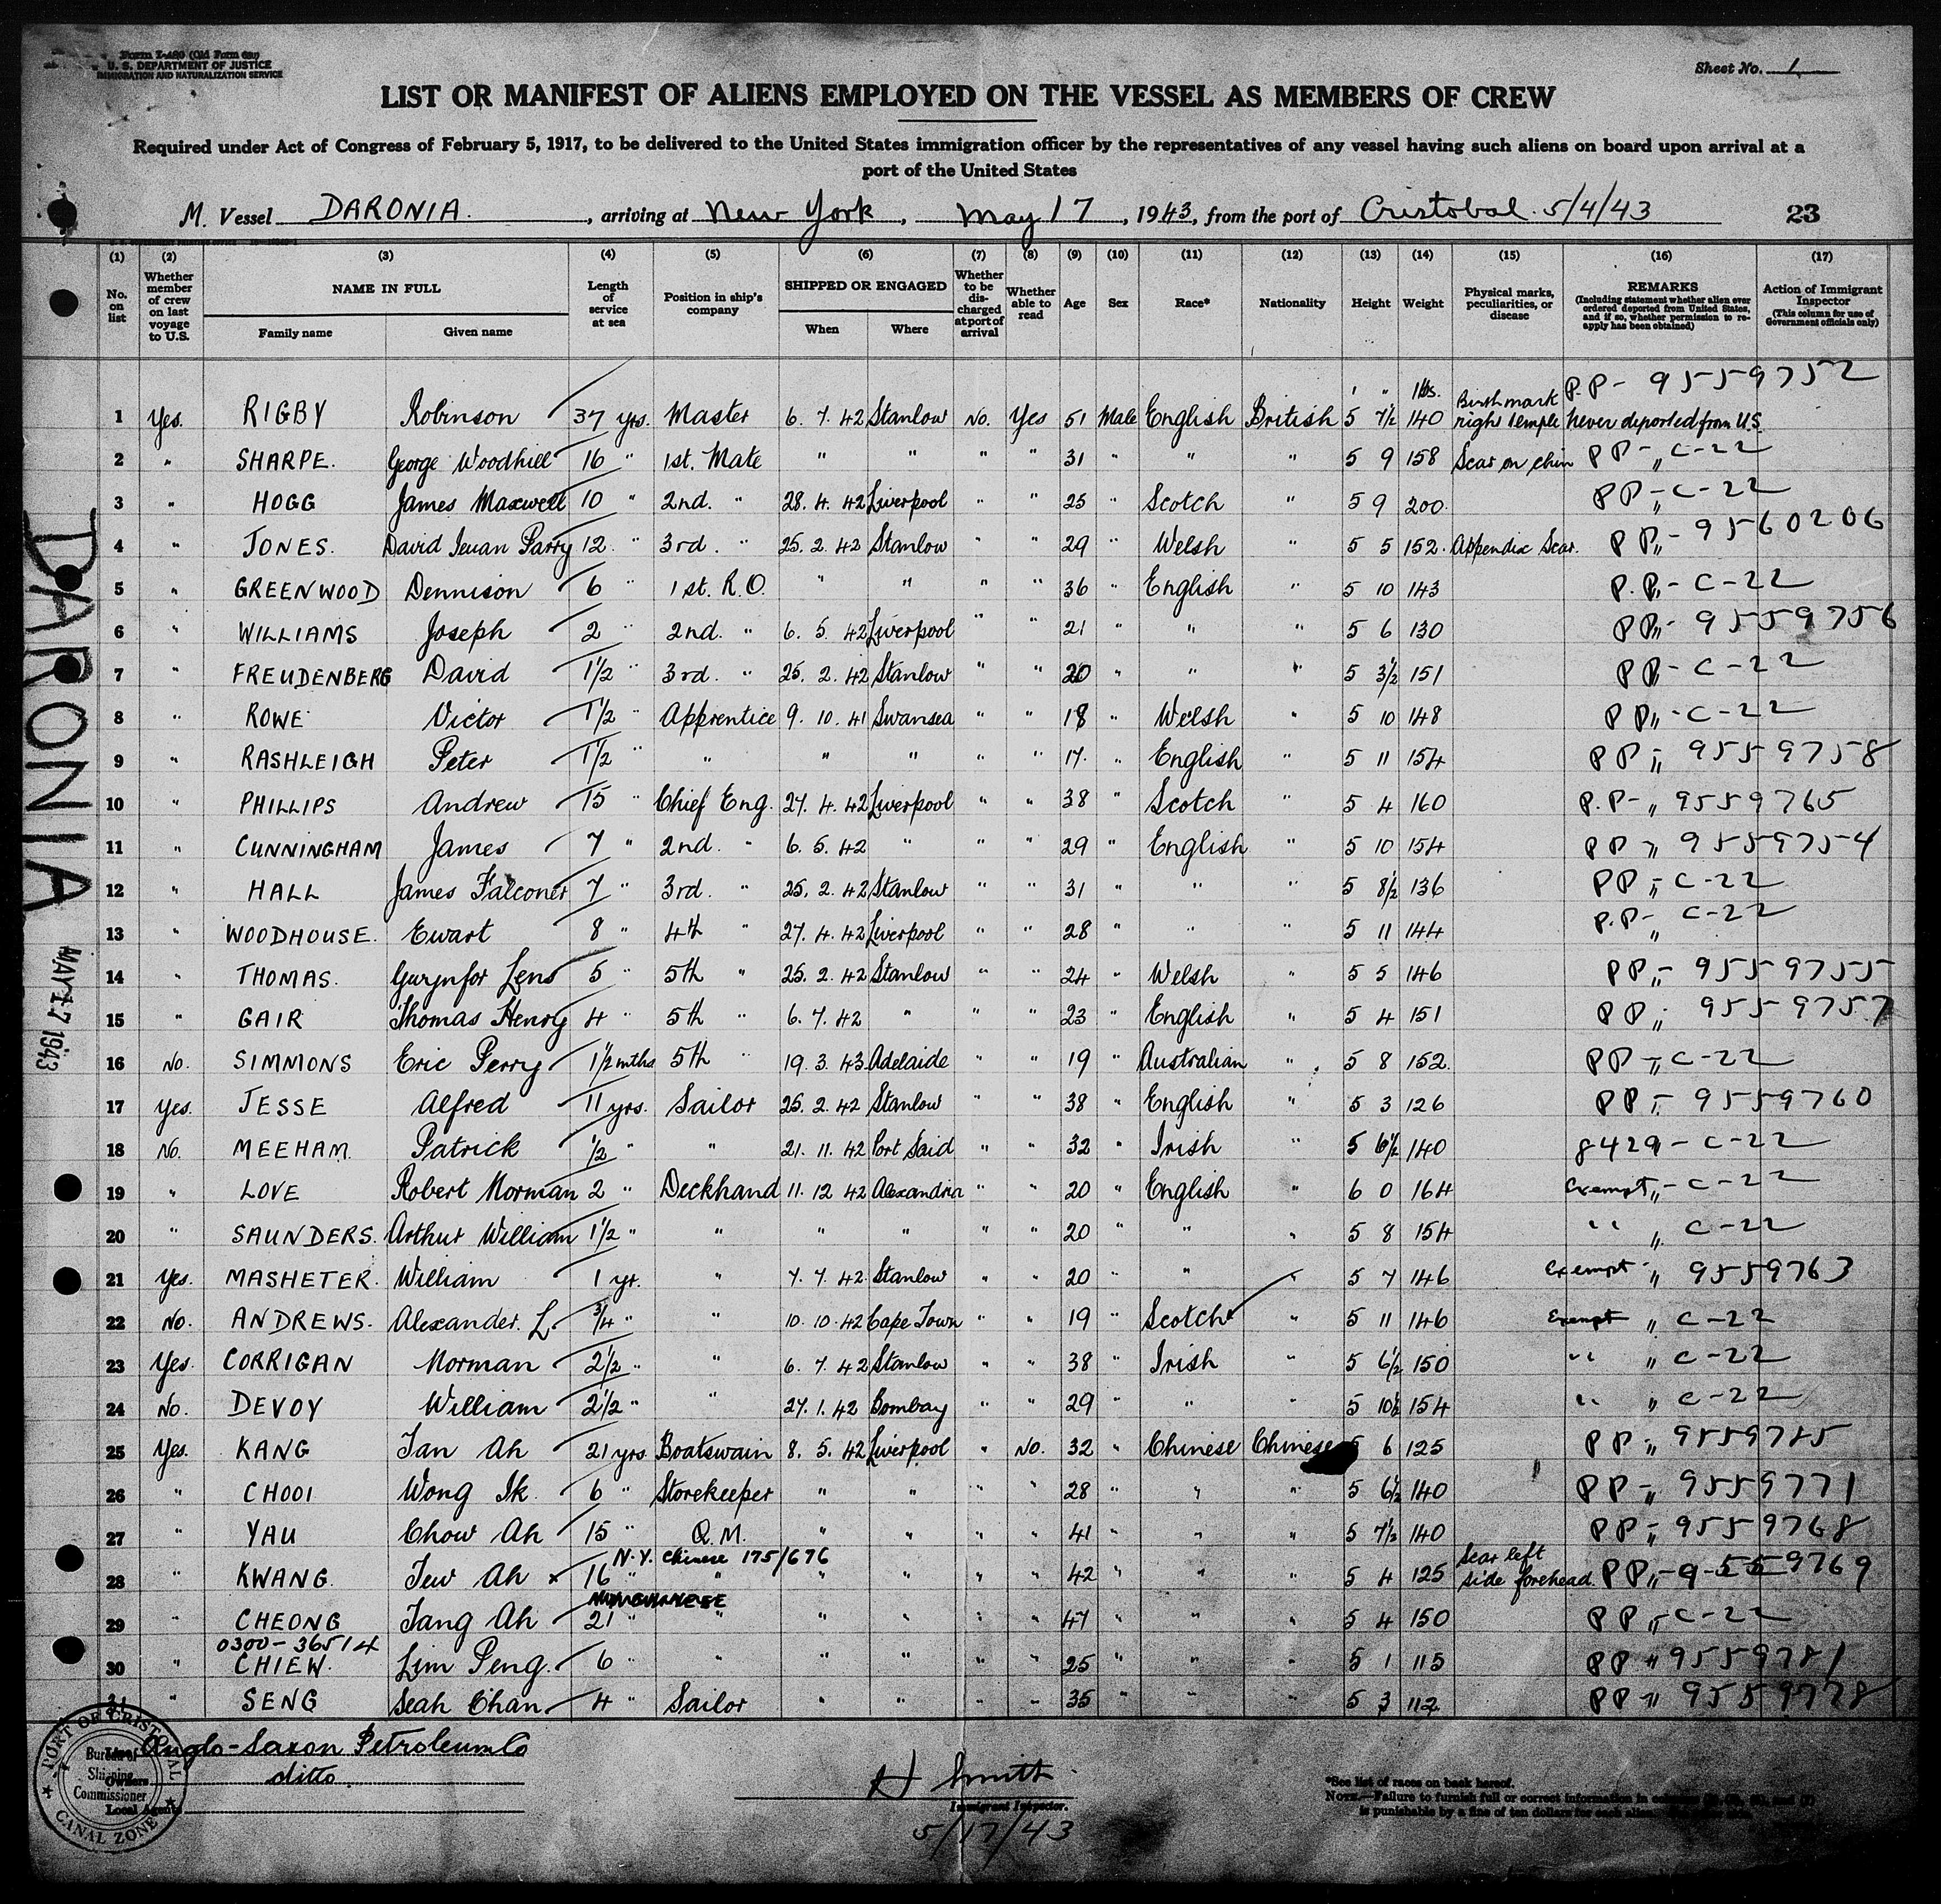 Form I-489 (Old Form 689)
U. S. DEPARTMENT OF JUSTICE
IMMIGRATION AND NATURALIZATION SERVICE
Sheet No. 1
LIST OR MANIFEST OF ALIENS EMPLOYED ON THE VESSEL AS MEMBERS OF CREW
Required under Act of Congress of February 5, 1917, to be delivered to the United States immigration officer by the representatives of any vessel having such aliens on board upon arrival at a
port of the United States
M. Vessel DARONIA. , arriving at New York , May 17 , 1943, from the port of Cristobal 5/4/43 23
(1) No. on list (2) Whether member of crew on last voyage to U.S. (3) NAME IN FULL Family name Given name (4) Length of service at sea (5) Position in ship's company (6) SHIPPED OR ENGAGED When Where (7) Whether to be discharged at port of arrival (8) Whether able to read (9) Age (10) Sex (11) Race* (12) Nationality (13) Height (14) Weight (15) Physical marks, peculiarities, or disease (16) REMARKS (Including statement whether alien ever ordered deported from United States, and if so, whether permission to reapply has been obtained) (17) Action of Immigrant Inspector (This column for use of Government officials only)
1 Yes. RIGBY Robinson 37 yrs. Master 6. 7. 42 Stanlow No. Yes 51 Male English British 5 ' 7½ " 140 lbs. Birthmark right temple P.P- 9559752 Never deported from U.S.
2 " SHARPE. George Woodhill 16 " 1st. Mate " " " " 31 " " " 5 9 158 Scar on chin PP- " C-22
3 " HOGG James Maxwell 10 " 2nd. " 28. 4. 42 Liverpool " " 25 " Scotch " 5 9 200. PP- " C-22
4 " JONES. David Ieuan Parry 12. " 3rd. " 25. 2. 42 Stanlow " " 29 " Welsh " 5 5 152. Appendix Scar. PP " - 9560206
5 " GREENWOOD Dennison 6 " 1st. R.O. " " " " 36 " English " 5 10 143 P.P. " - C-22
6 " WILLIAMS Joseph 2 " 2nd. " 6. 5. 42 Liverpool " " 21 " " " 5 6 130 PP " - 9559756
7 " FREUDENBERG David 1½ " 3rd. " 25. 2. 42 Stanlow " " 20 " " " 5 3½ 151 PP " - C-22
8 " ROWE Victor 1½ " Apprentice 9. 10. 41 Swansea " " 18 " Welsh " 5 10 148 PP " - C-22
9 " RASHLEIGH Peter 1½ " " " " " " 17. " English " 5 11 154 PP - " 9559758
10 " PHILLIPS Andrew 15 " Chief Eng. 27. 4. 42 Liverpool " " 38 " Scotch " 5 4 160 P.P- " 9559765
11 " CUNNINGHAM James 7 " 2nd. " 6. 5. 42 " " " 29 " English " 5 10 154 PP - " 9559754
12 " HALL James Falconer 7 " 3rd. " 25. 2. 42 Stanlow " " 31 " " " 5 8½ 136 PP - " C-22
13 " WOODHOUSE. Ewart 8 " 4th " 27. 4. 42 Liverpool " " 28 " " " 5 11 144 P.P- " C-22
14 " THOMAS. Gwynfor Lens 5 " 5th " 25. 2. 42 Stanlow " " 24 " Welsh " 5 5 146 PP " - 9559755
15 " GAIR Thomas Henry 4 " 5th " 6. 7. 42 " " " 23 " English " 5 4 151 PP " - 9559757
16 No. SIMMONS Eric Perry 1½ mths 5th " 19. 3. 43 Adelaide " " 19 " Australian " 5 8 152. PP - " C-22
17 Yes. JESSE Alfred 11 yrs. Sailor 25. 2. 42 Stanlow " " 38 " English " 5 3 126 PP - " 9559760
18 No. MEEHAM. Patrick ½ " " 21. 11. 42 Port Said " " 32 " Irish " 5 6½ 140 8429 - C-22
19 " LOVE Robert Norman 2 " Deckhand 11. 12 42 Alexandria " " 20 " English " 6 0 164 Exempt " - C-22
20 " SAUNDERS. Arthur William 1½ " " " " " " 20 " " " 5 8 154 " " C-22
21 Yes. MASHETER. William 1 yr. " 7. 7. 42 Stanlow " " 20 " " " 5 7 146 Exempt - " 9559763
22 No. ANDREWS. Alexander. L. ¾ " " 10. 10. 42 Cape Town " " 19 " Scotch " 5 11 146 Exempt " C-22
23 Yes. CORRIGAN Norman 2½ " " 6. 7. 42 Stanlow " " 38 " Irish " 5 6½ 150 " " C-22
24 No. DEVOY William 2½ " " 27. 1. 42 Bombay " " 29 " " " 5 10½ 154 " " C-22
25 Yes. KANG Tan Ah 21 yrs. Boatswain 8. 5. 42 Liverpool " No. 32 " Chinese Chinese 5 6 125 PP - " 9559785
26 " CHOOI Wong Ik. 6 " Storekeeper " " " " 28 " " " 5 6½ 140 PP - " 9559771
27 " YAU Chow Ah 15 " Q.M. " " " " 41 " " " 5 7½ 140 PP - " 9559768
N.Y. Chinese 175/676
28 " KWANG. Tew Ah x 16 " " " " " " 42 " " " 5 4 125 Scar left side forehead. PP " - 9559769
29 " CHEONG Tang Ah 21 " " " " " " 47 " " " 5 4 150 PP " - C-22
0300-36514
30 " CHIEW. Lim Peng. 6 " " " " " " 25 " " " 5 1 115 PP " 9559781
31 " SENG Seah Chan 4 " Sailor " " " " 35 " " " 5 3 112 PP - " 9559778
DARONIA
MAY 17 1943
Anglo-Saxon Petroleum Co
Owners ditto.
Local Agents
PORT OF CRISTOBAL
Bureau of
Shipping
Commissioner
CANAL ZONE
H Smith
Immigrant Inspector.
5/17/43
*See list of races on back hereof.
NOTE.—Failure to furnish full or correct information in
is punishable by a fine of ten dollars for each alien